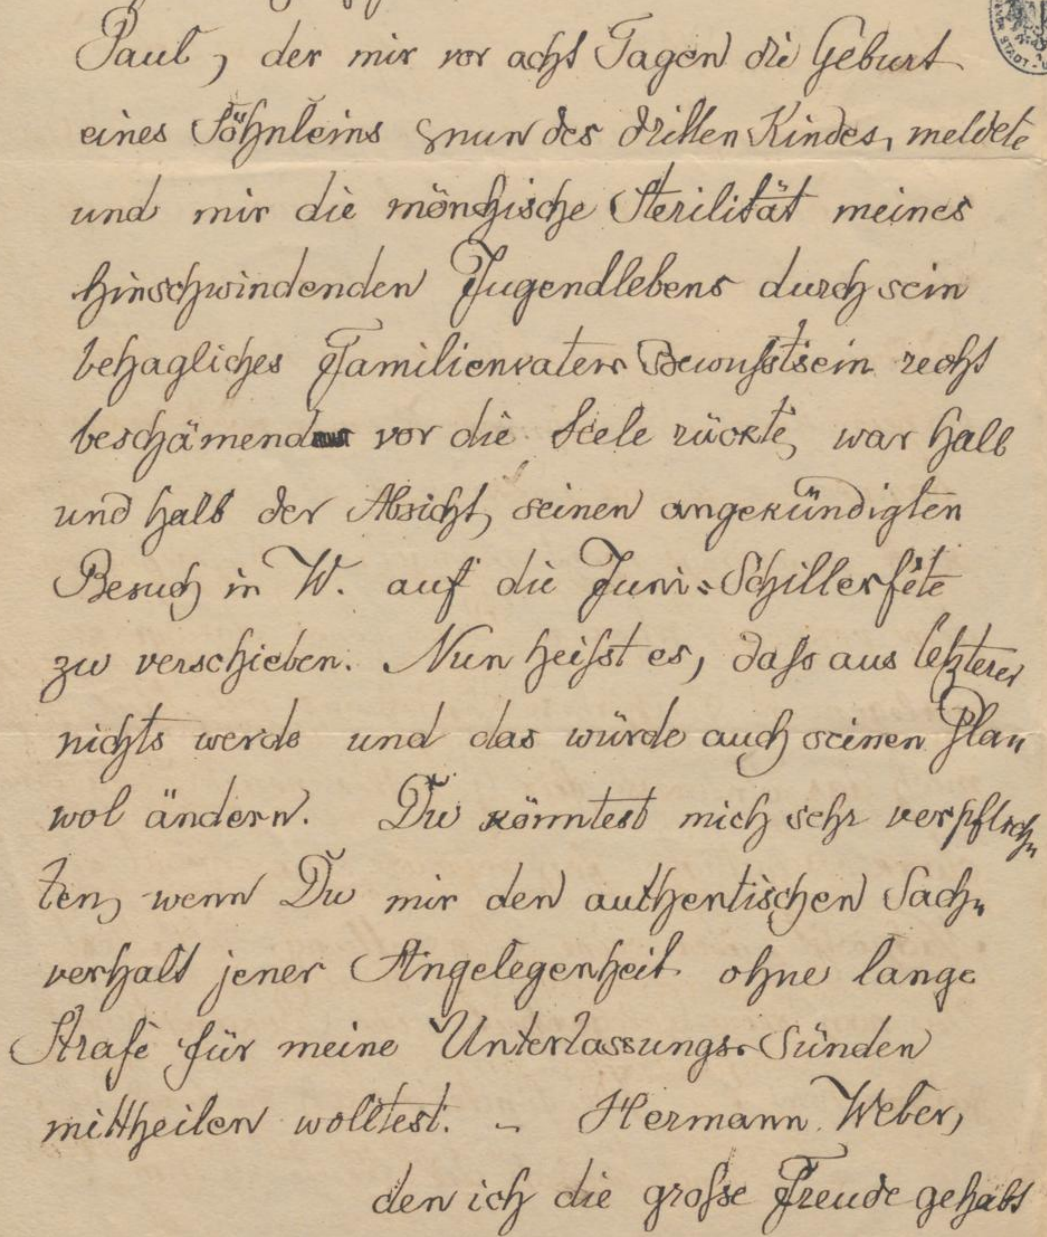 Paul, der mir vor acht Tagen die Geburt
eines Söhnleins, nun des dritten Kindes, meldete
und mir die mönchische Sterilität meines
hinschwindenden Jugendlebens durch sein
behagliches Familienvaters Bewußtsein recht
beschämend vor die Seele rückte, war halb
und halb der Absicht, seinen angekündigten
Besuch in W. auf die Juni=Schillerfête
zu verschieben. Nun heißt es, daß aus letzterer
nichts werde und das würde auch seinen Plan
wol ändern. Du könntest mich sehr verpflich=
ten, wenn Du mir den authentischen Sach=
verhalt jener Angelegenheit ohne lange
Strafe für meine Unterlassungs-Sünden
mittheilen wolltest. – Hermann Weber,
den ich die große Freude gehabt